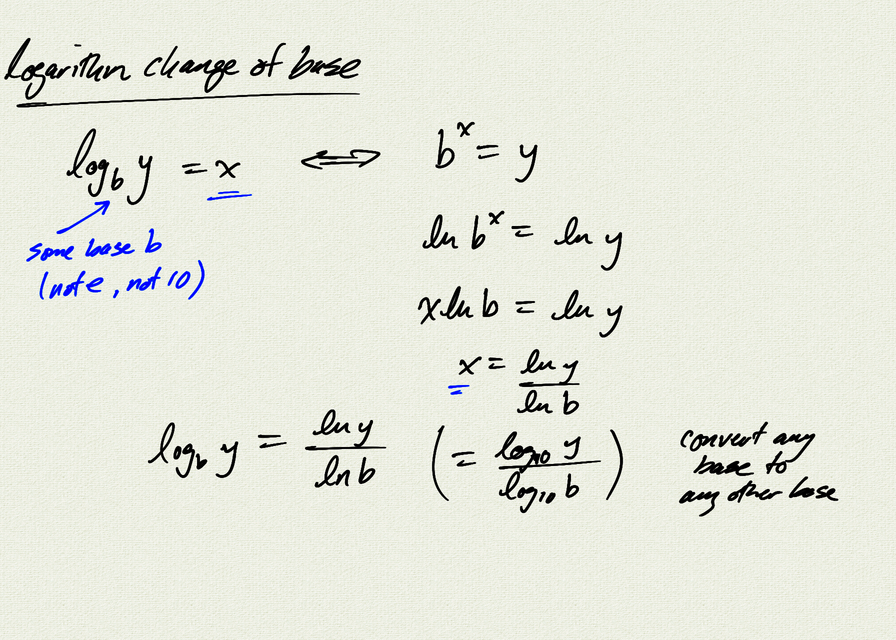 logarithm change of base
log_b y = x ⟺ b^x = y
some base b
(not e, not 10)
ln b^x = ln y
x ln b = ln y
x = ln y / ln b
log_b y = ln y / ln b (= log_10 y / log_10 b)
convert any
base to
any other base